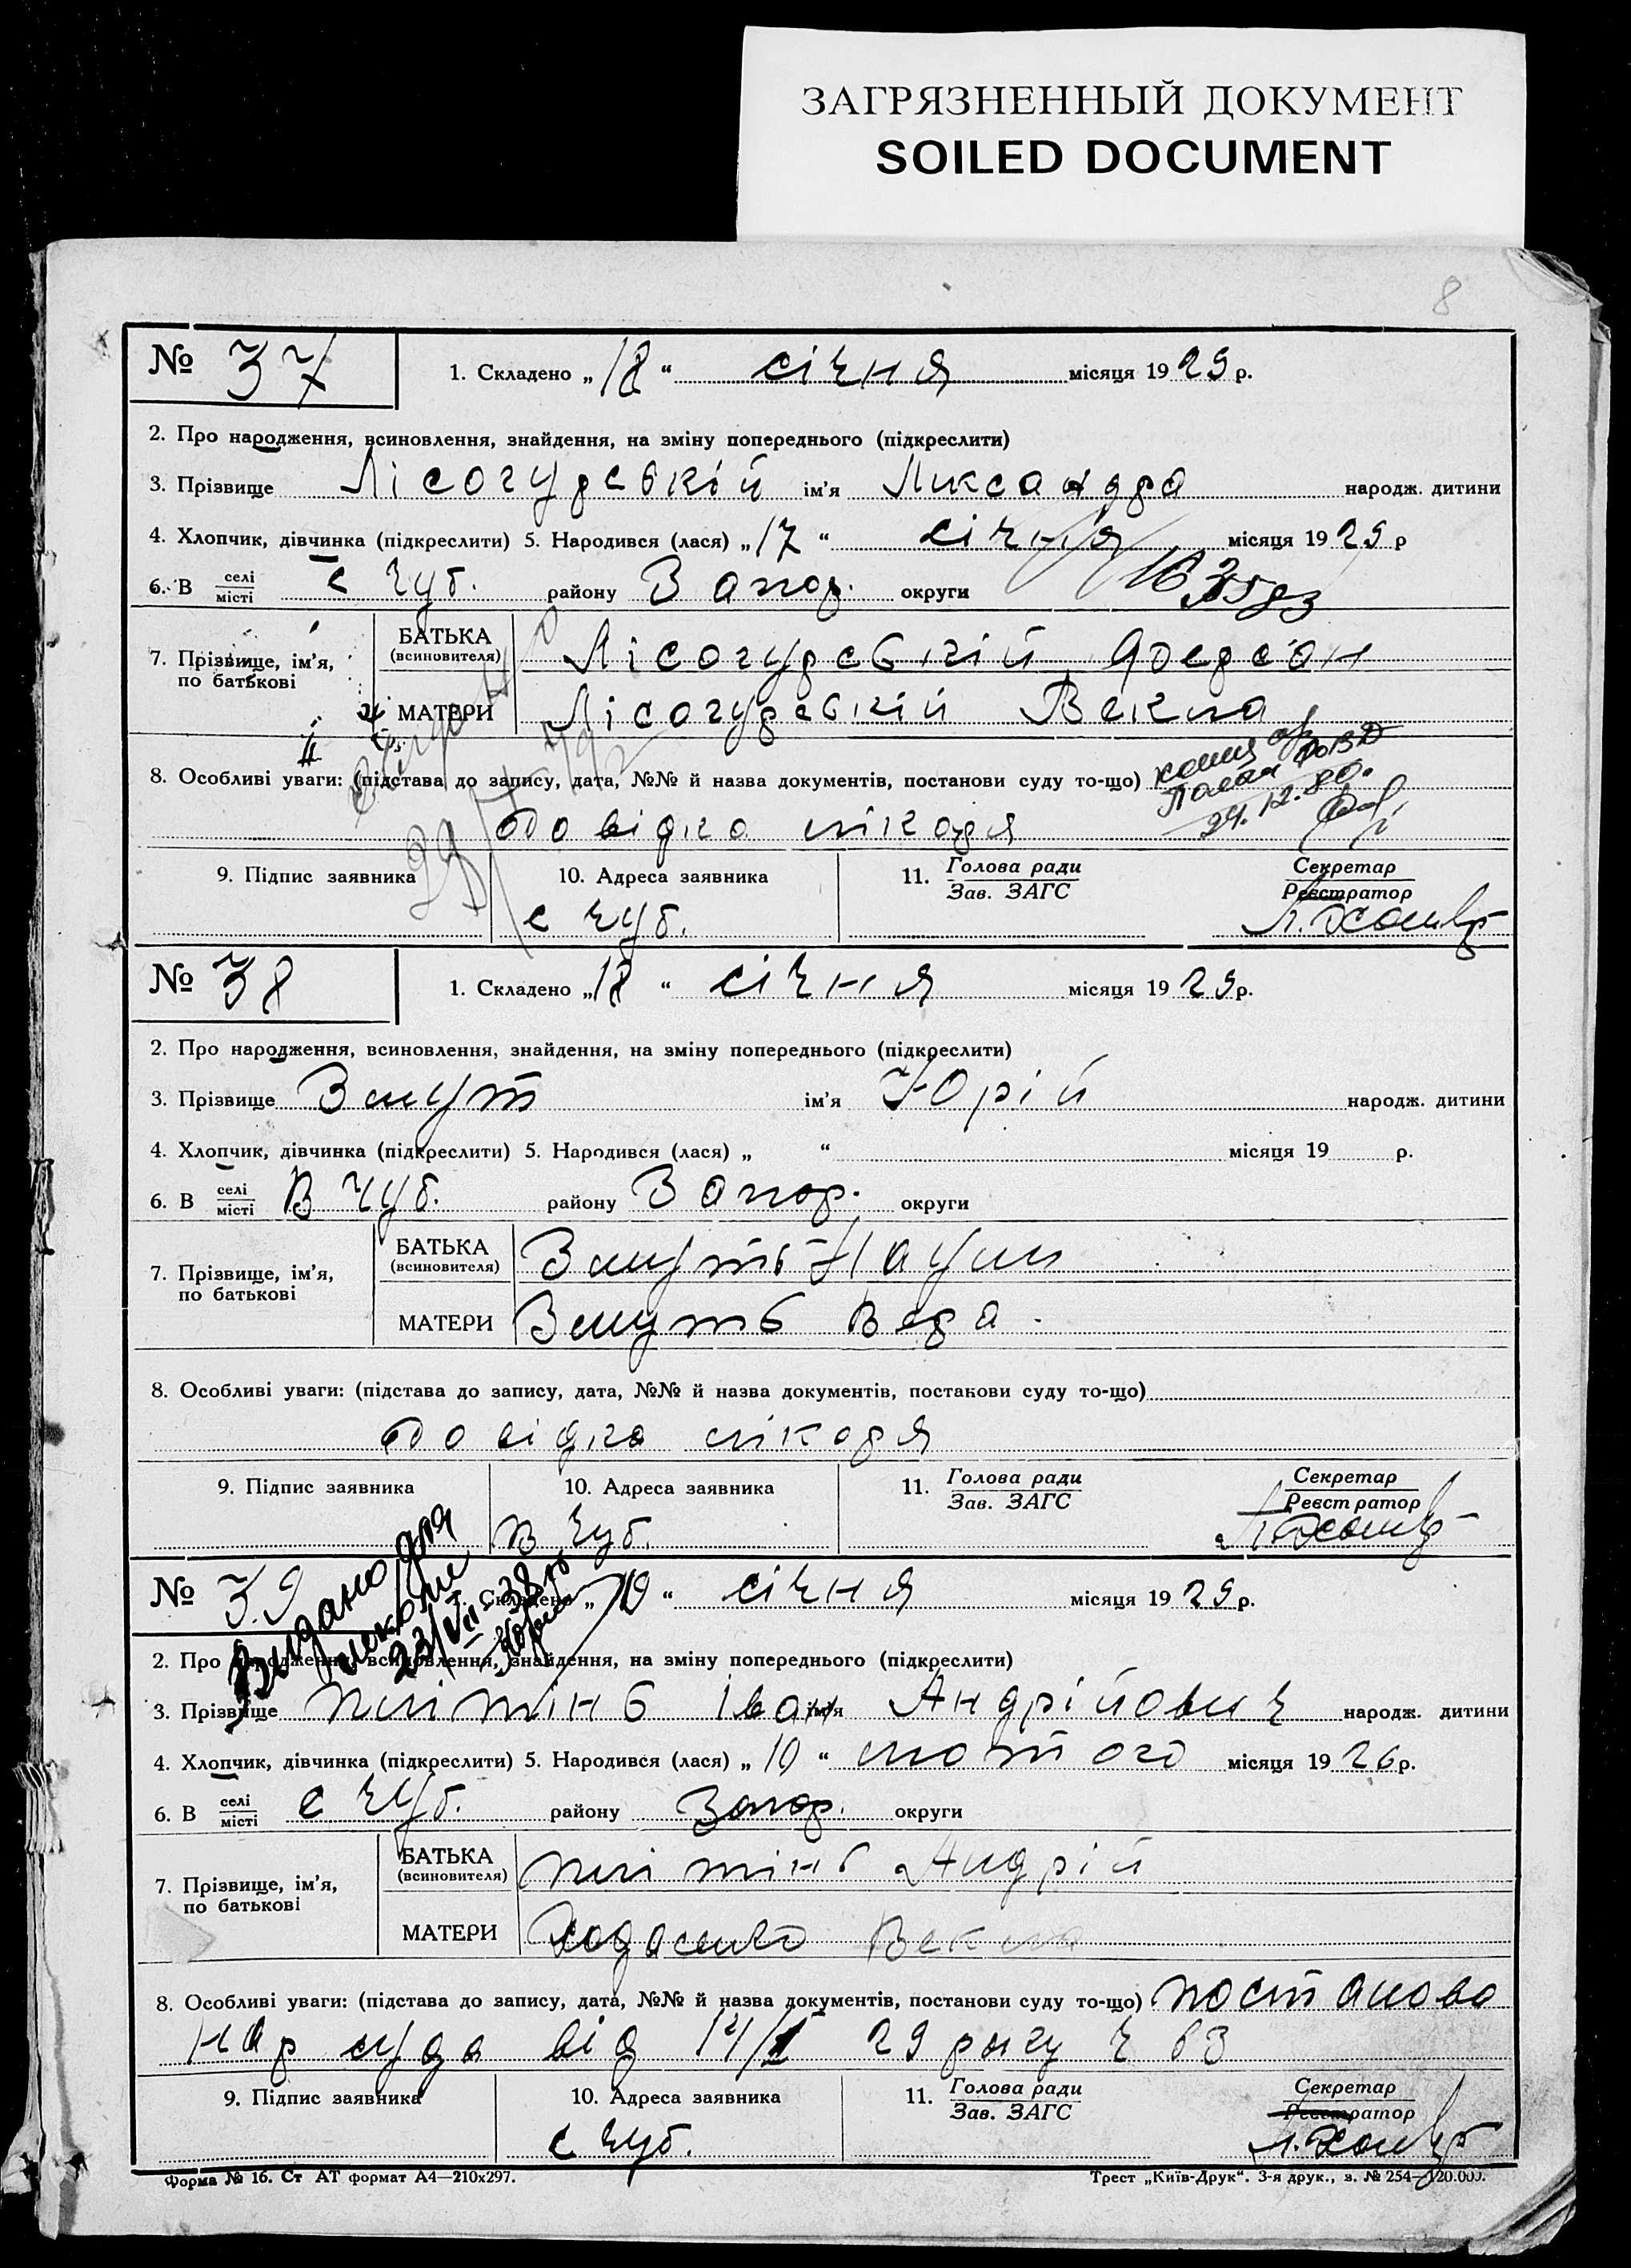 ЗАГРЯЗНЕННЫЙ ДОКУМЕНТ
SOILED DOCUMENT
8
№ 37 1. Складено „18“ січня місяця 1929 р.
2. Про народження, всиновлення, знайдення, на зміну попереднього (підкреслити)
3. Прізвище Лісогурський ім'я Ликсандра народж. дитини
4. Хлопчик, дівчинка (підкреслити) 5. Народився (лася) „17“ січня місяця 1929 р
6. В селі/місті с Чуб. району Запор. округи
7. Прізвище, ім'я, по батькові
БАТЬКА (всиновителя) Лісогурсвкій
МАТЕРИ Лісогурсвкій Векла
8. Особливі уваги: (підстава до запису, дата, №№ й назва документів, постанови суду то-що)
24.12.80.
Довідка лікаря
9. Підпис заявника 10. Адреса заявника 11. Голова ради/Зав. ЗАГС Секретар/Реєстратор
с Чуб.
№ 38 1. Складено „18“ січня місяця 1929 р.
2. Про народження, всиновлення, знайдення, на зміну попереднього (підкреслити)
3. Прізвище Змут ім'я Юрій народж. дитини
4. Хлопчик, дівчинка (підкреслити) 5. Народився (лася) „ “ місяця 19 р.
6. В селі/місті В Чуб. району Запор. округи
7. Прізвище, ім'я, по батькові
БАТЬКА (всиновителя) Змуть Наум
МАТЕРИ Змуть Вера
8. Особливі уваги: (підстава до запису, дата, №№ й назва документів, постанови суду то-що)
Довідка лікоря
9. Підпис заявника 10. Адреса заявника 11. Голова ради/Зав. ЗАГС Секретар/Реєстратор
В Чуб.
№ 39 1. Складено „19“ січня місяця 1929 р.
Видано для
школи
23/VII-38 р
2. Про народження, всиновлення, знайдення, на зміну попереднього (підкреслити)
3. Прізвище Плітінь Іван ім'я Андрійович народж. дитини
4. Хлопчик, дівчинка (підкреслити) 5. Народився (лася) „10“ лютого місяця 1926 р.
6. В селі/місті с Чуб. району Запор. округи
7. Прізвище, ім'я, по батькові
БАТЬКА (всиновителя) Плітінь Андрій
МАТЕРИ Векла
8. Особливі уваги: (підстава до запису, дата, №№ й назва документів, постанови суду то-що) постанова
нар суда від 14/I 29 року ч 63
9. Підпис заявника 10. Адреса заявника 11. Голова ради/Зав. ЗАГС Секретар/Реєстратор
с Чуб.
Форма № 16. Ст АТ формат А4—210x297. Трест „Київ-Друк“. 3-я друк., з. № 254—120.000.